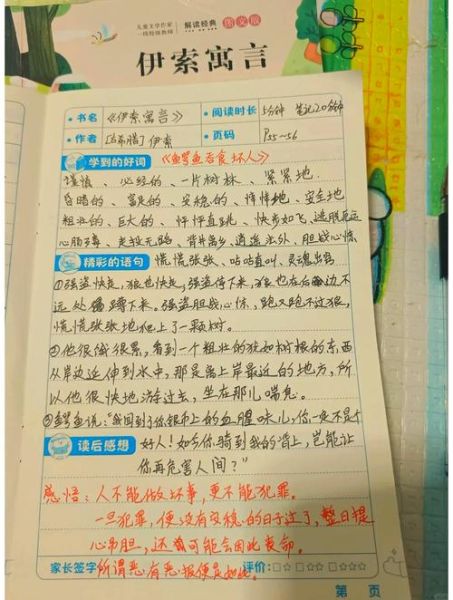 儿童文学作家
一线特级教师
解读经典
图文版
伊索寓言
·书名 《伊索寓言》 ·阅读时长 5分钟 笔记20分钟
·作者 [古希腊]伊索 ·页码 P55~56
学到的好词 《鳄鱼吞食坏人》
谨慎、必经的、一片树林、紧紧地
昏暗的、富足的、安稳的、悻悻地、安全地
粗壮的、巨大的、怦怦直跳、快步如飞、逃脱
心脏、走投无路、背井离乡、逍遥法外、胆战心惊
精彩的语句 慌慌张张、咕咕直叫、灵魂出窍
①强盗快走,狼也快走,强盗停下来,狼也在后边不
远处蹲下来。强盗胆战心惊,跑又跑不过狼,
慌慌张张地爬上了一颗树。
②他很饿很累,看到一个粗壮的犹如树根的东西
从岸边延伸到水中,那是离上岸最近的地方,所
以他很快地游过去,坐在那儿喘息。
③鳄鱼说:"我闻到了你银币上的血腥味儿,你一定不是个
读后感想 好人!如今你骑到我的背上,岂能让
你再危害人间?"
感悟:人不能做坏事,更不能犯罪。
一旦犯罪,便没有安稳的日子过了,整日提
心吊胆,还有可能会因此丧命。
家长签字 所谓恶有恶报便是如此。 评价:□☆ □☆☆ □☆☆☆
第 页